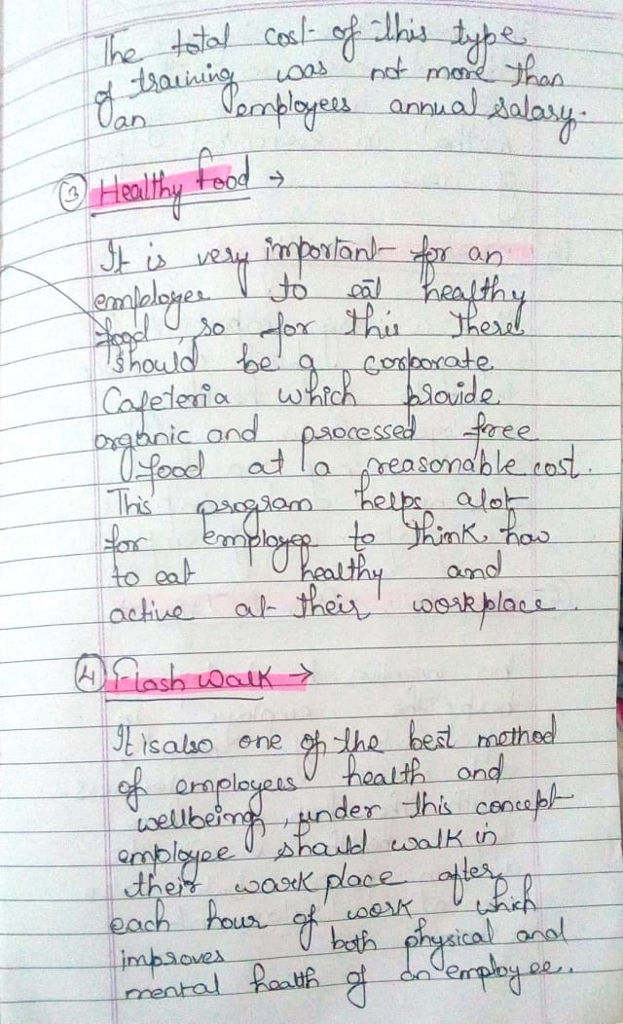 The total cost of this type
of training was not more than
an employees annual salary.
③ Healthy food →
It is very important for an
employee to eat healthy
food, so for this there
should be a corporate
Cafeteria which provide
organic and processed free
food at a reasonable cost.
This program helps alot
for employee to think how
to eat healthy and
active at their workplace.
④ Flash walk →
It is also one of the best method
of employees health and
wellbeing, under this concept
employee should walk in
their work place after
each hour of work which
improves both physical and
mental health of an employee.